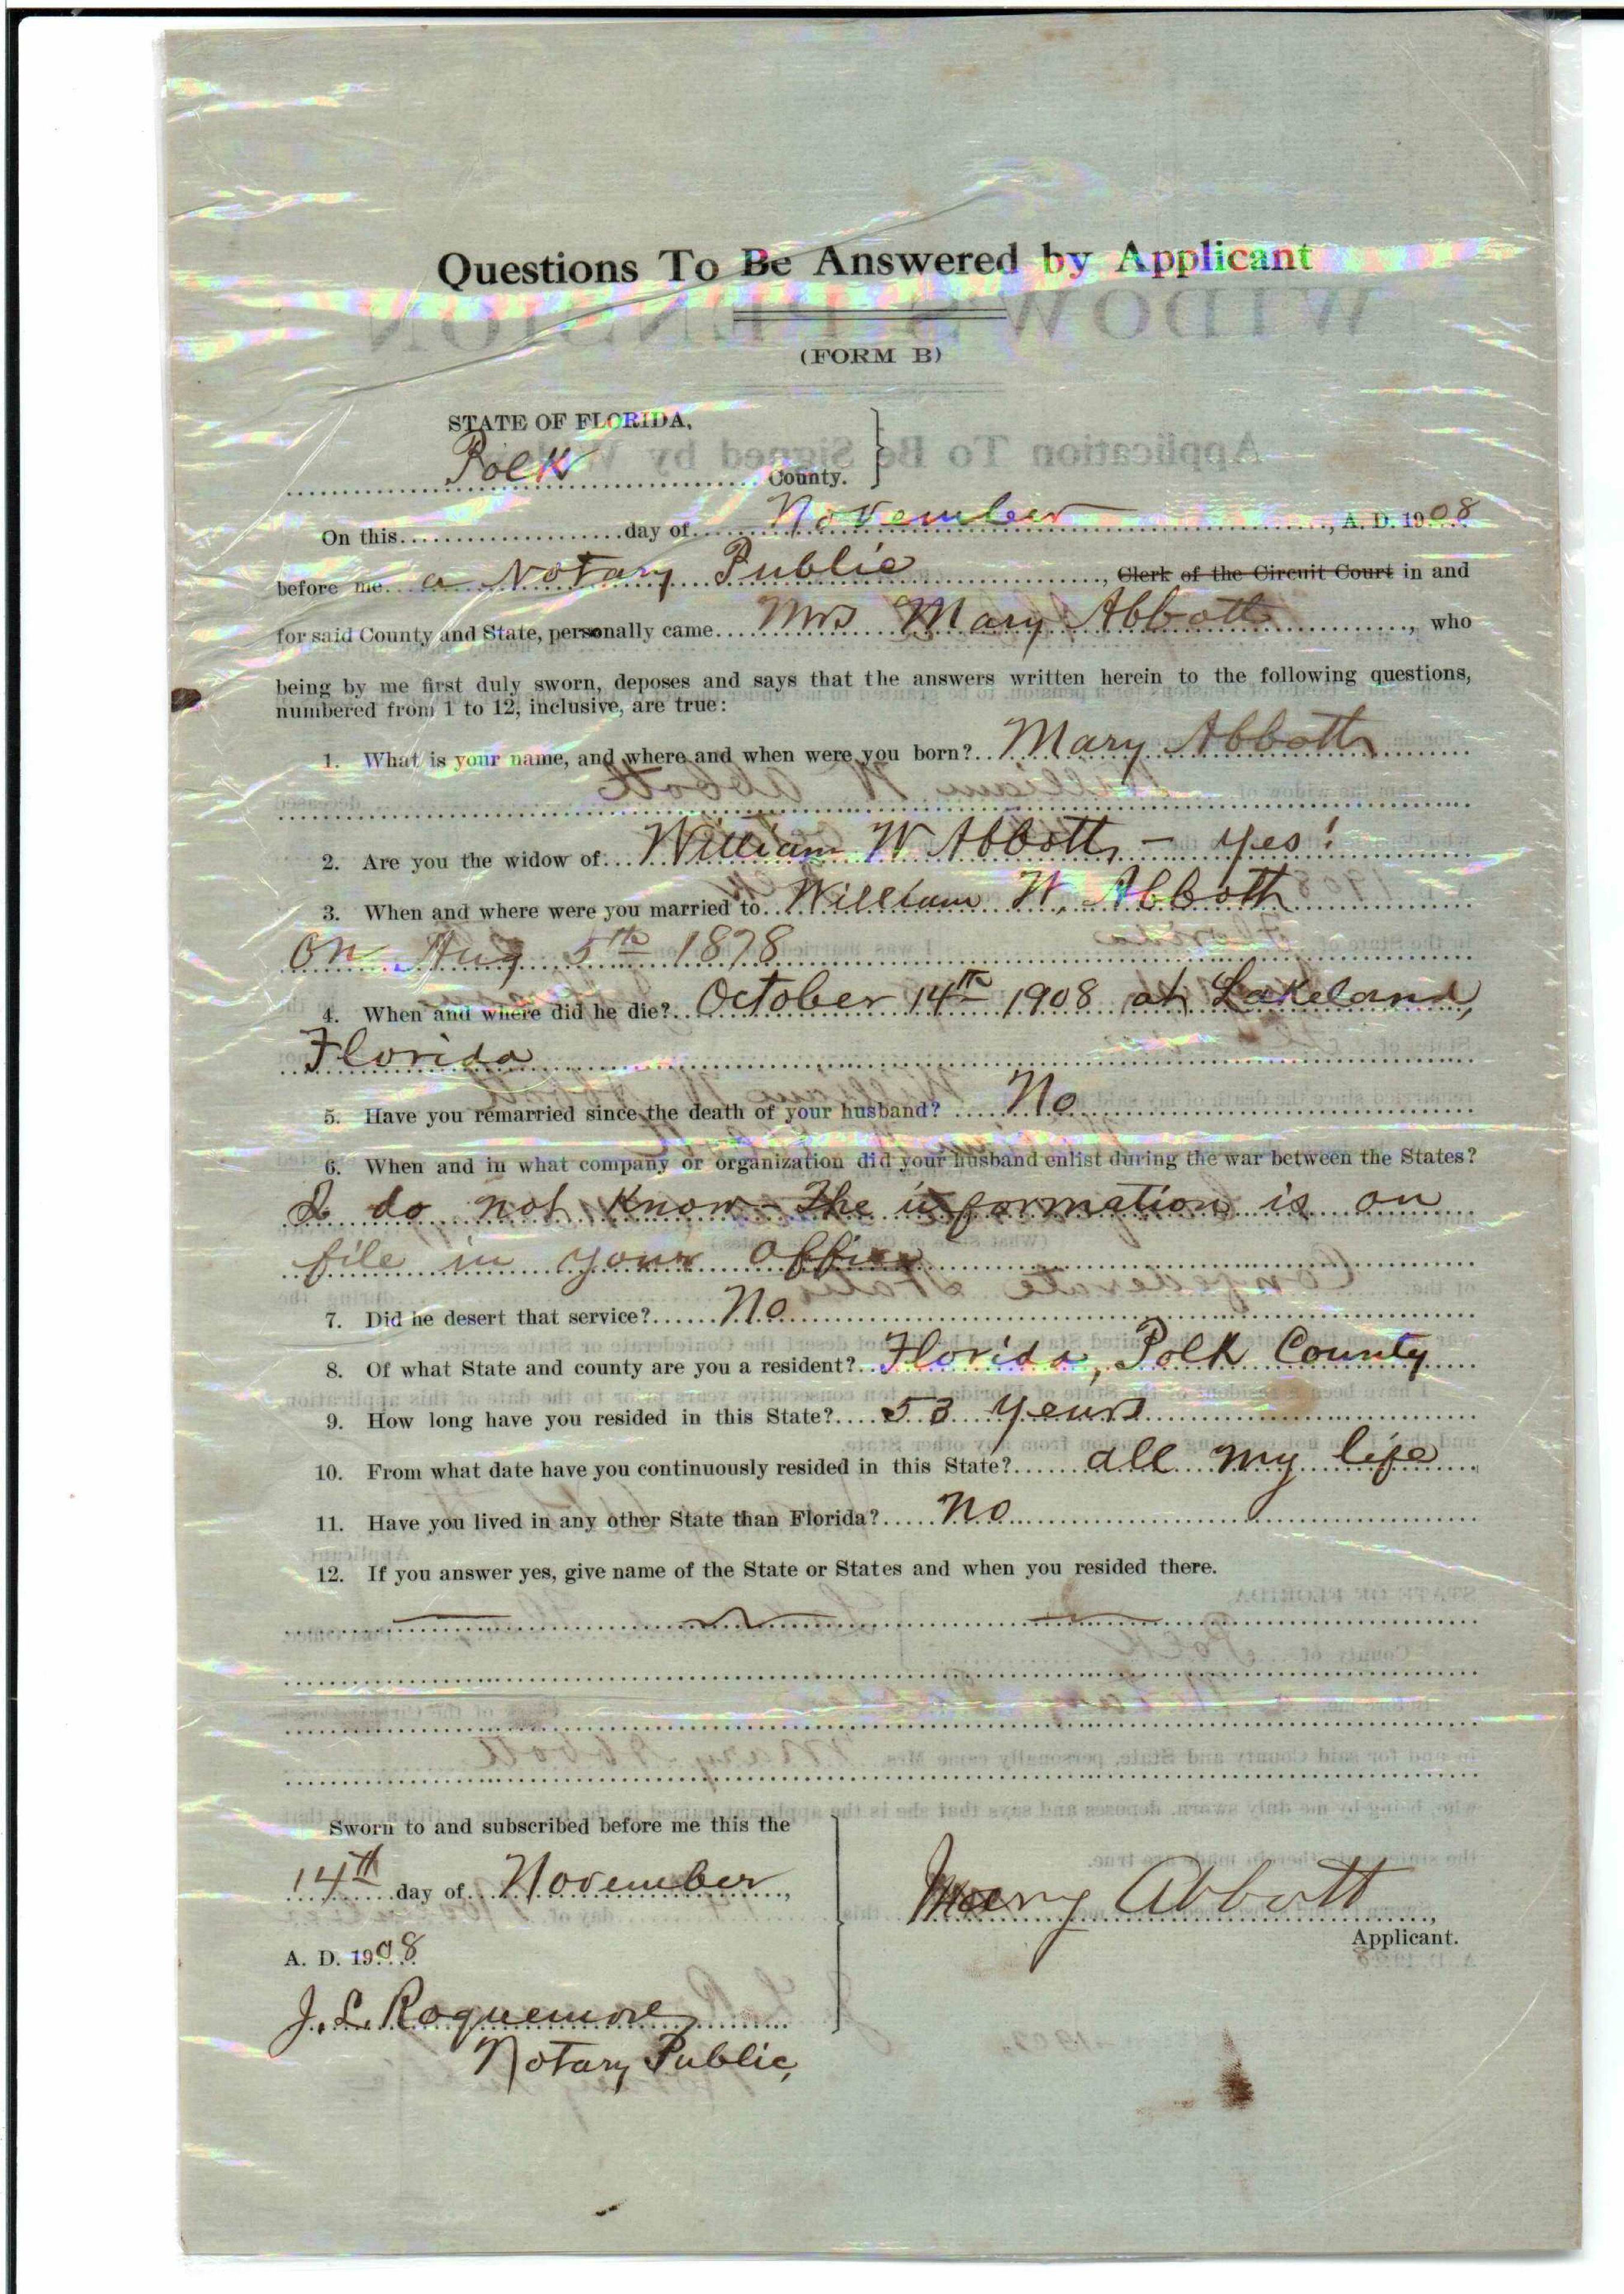 Questions To Be Answered by Applicant
WIDOW'S PENSION
(FORM B)
STATE OF FLORIDA,
Polk County.
Application To Be Signed by
On this day of November, A. D. 1908
before me a Notary Public, Clerk of the Circuit Court in and
for said County and State, personally came Mrs Mary Abbott, who
being by me first duly sworn, deposes and says that the answers written herein to the following questions,
numbered from 1 to 12, inclusive, are true:
1. What is your name, and where and when were you born? Mary Abbott
2. Are you the widow of William W Abbott, - yes!
3. When and where were you married to William W. Abbott
on Aug 5th 1878
4. When and where did he die? October 14th 1908 at Lakeland,
Florida
5. Have you remarried since the death of your husband? No
6. When and in what company or organization did your husband enlist during the war between the States?
I do not know - The information is on
file in your office
7. Did he desert that service? No
8. Of what State and county are you a resident? Florida, Polk County
9. How long have you resided in this State? 53 years
10. From what date have you continuously resided in this State? all my life
11. Have you lived in any other State than Florida? no
12. If you answer yes, give name of the State or States and when you resided there.
Sworn to and subscribed before me this the
14th day of November,
A. D. 1908
Mary Abbott,
Applicant.
J. L. Roquemore
Notary Public,